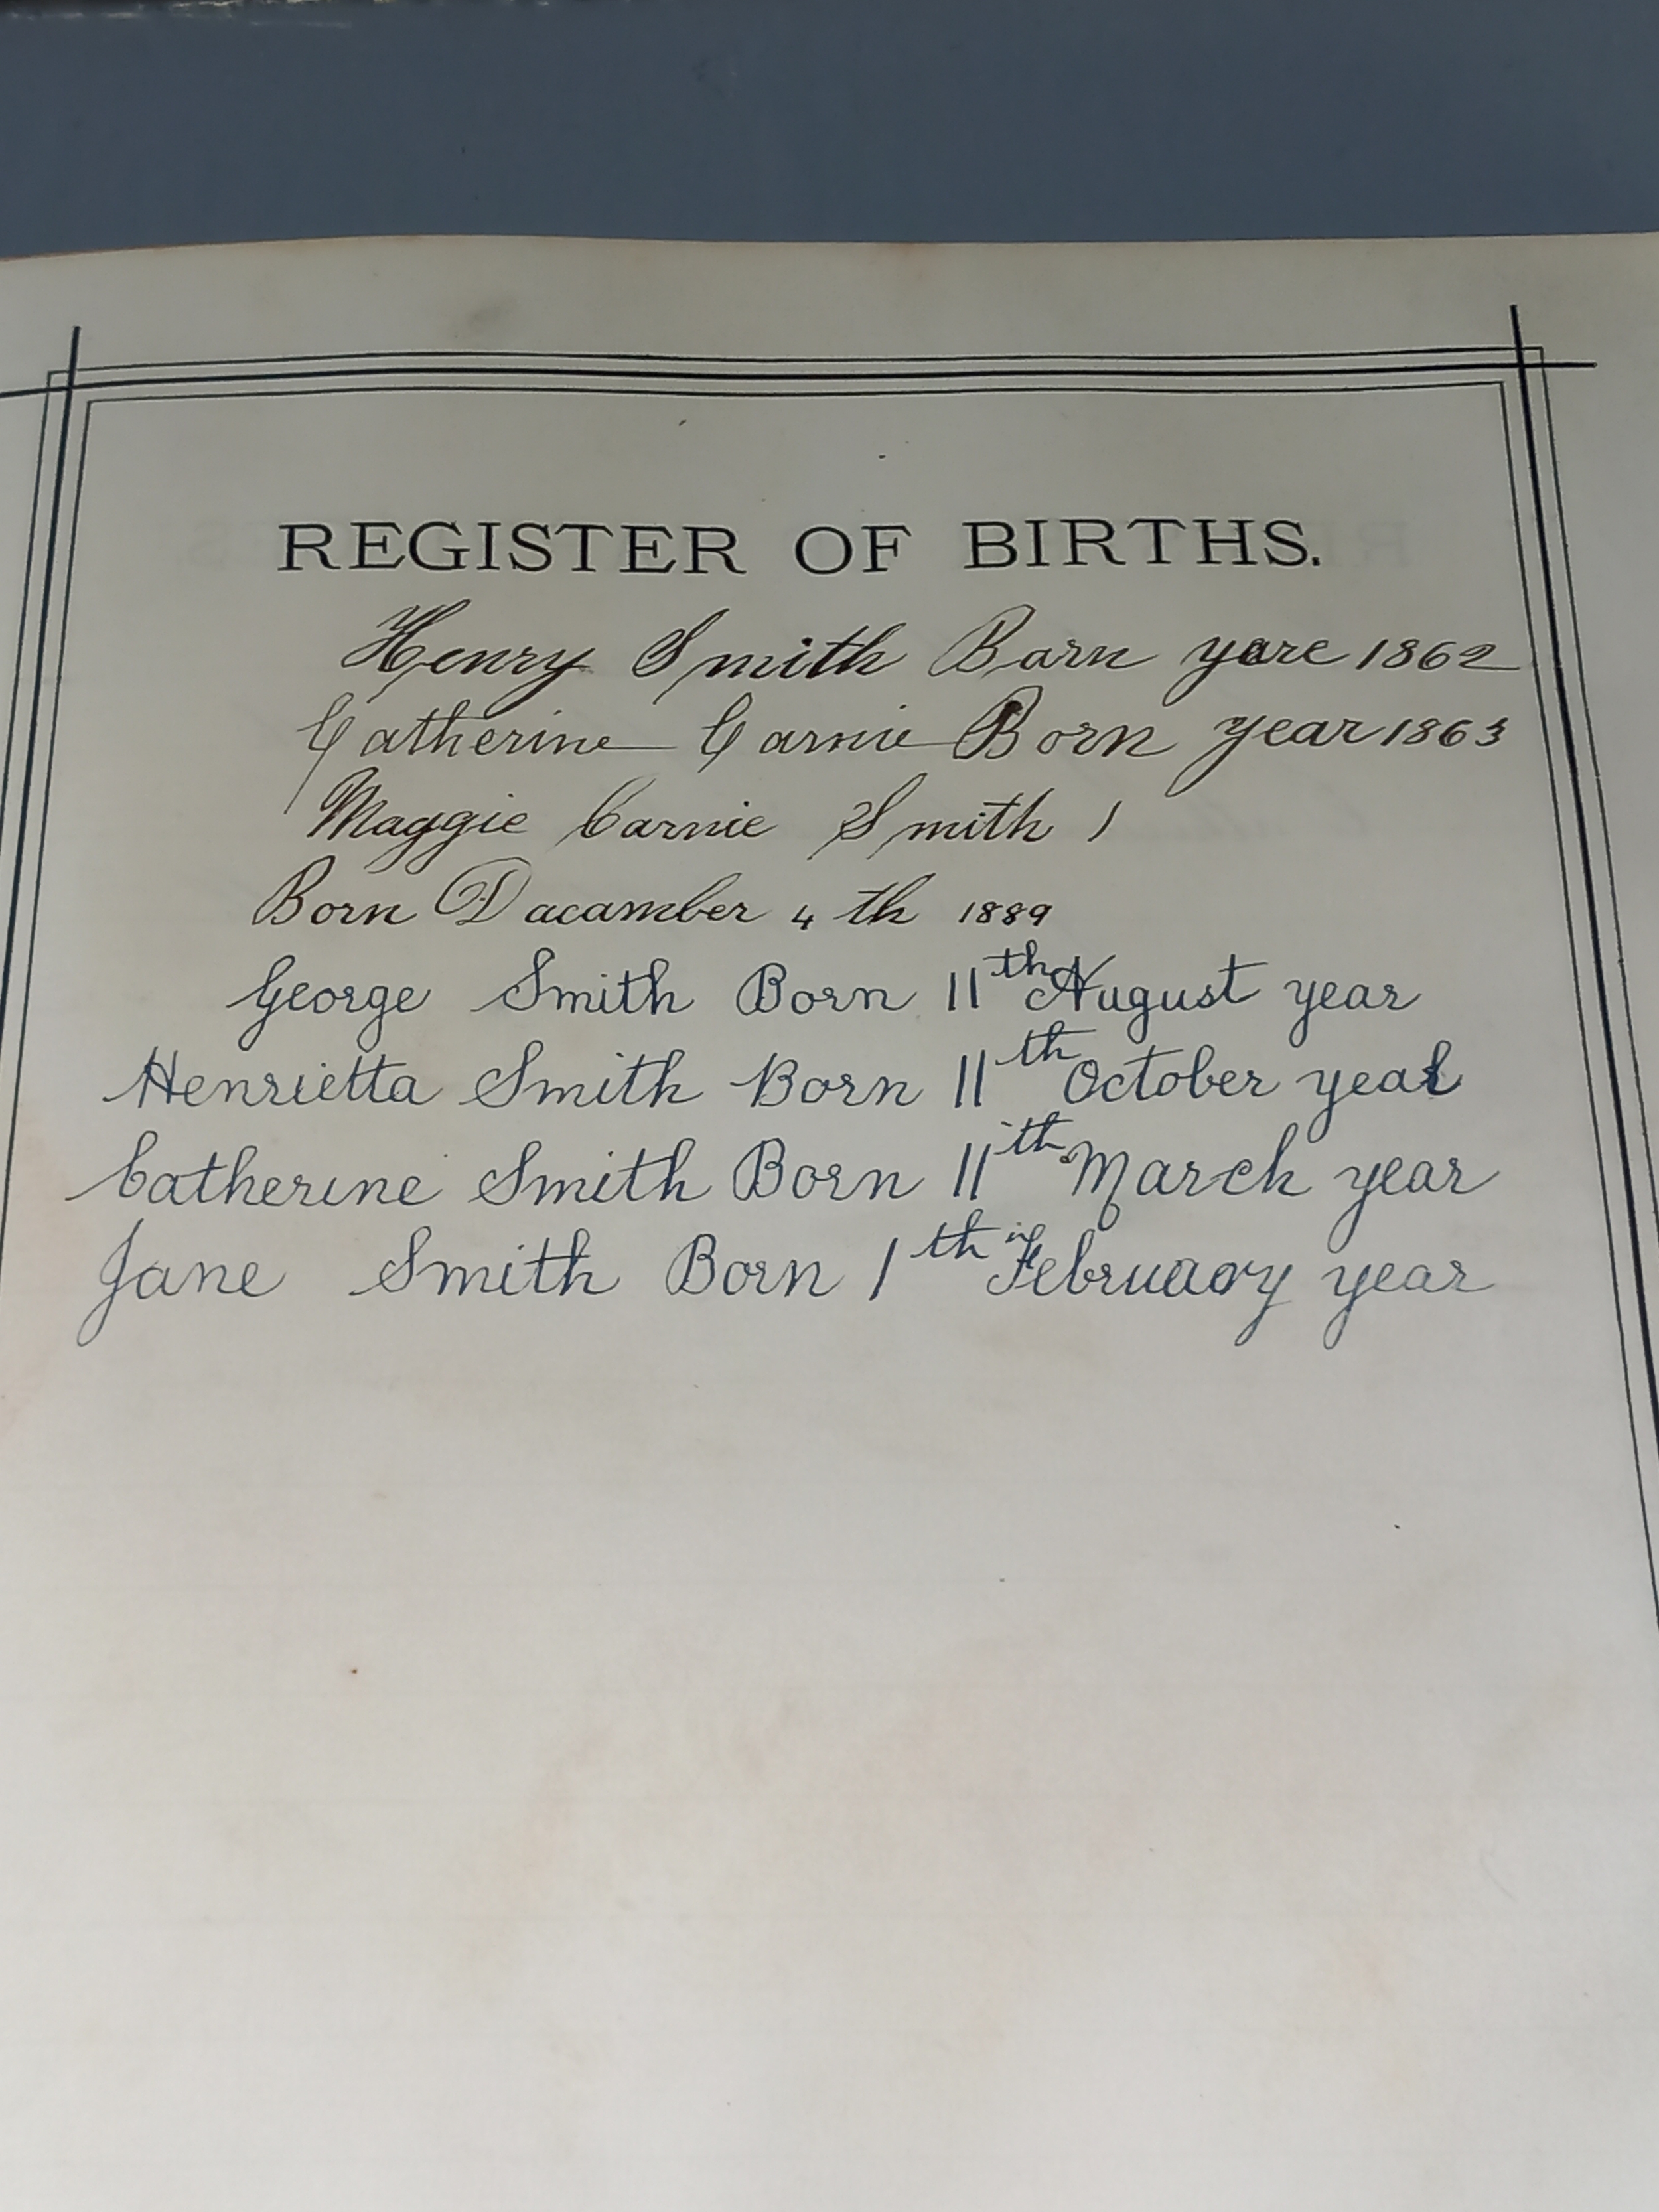 REGISTER OF BIRTHS.
Henry Smith Barn yare 1862
Catherine Carnie Born year 1863
Maggie Carnie Smith 1
Born Dacamber 4 th 1889
George Smith Born 11th August year
Henrietta Smith Born 11th October year
Catherine Smith Born 11th March year
Jane Smith Born 1th in February year